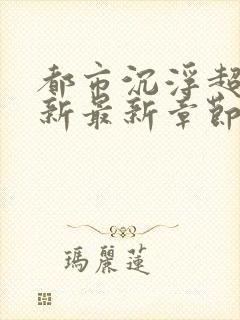 都市沉浮超
新最新章節
瑪麗蓮